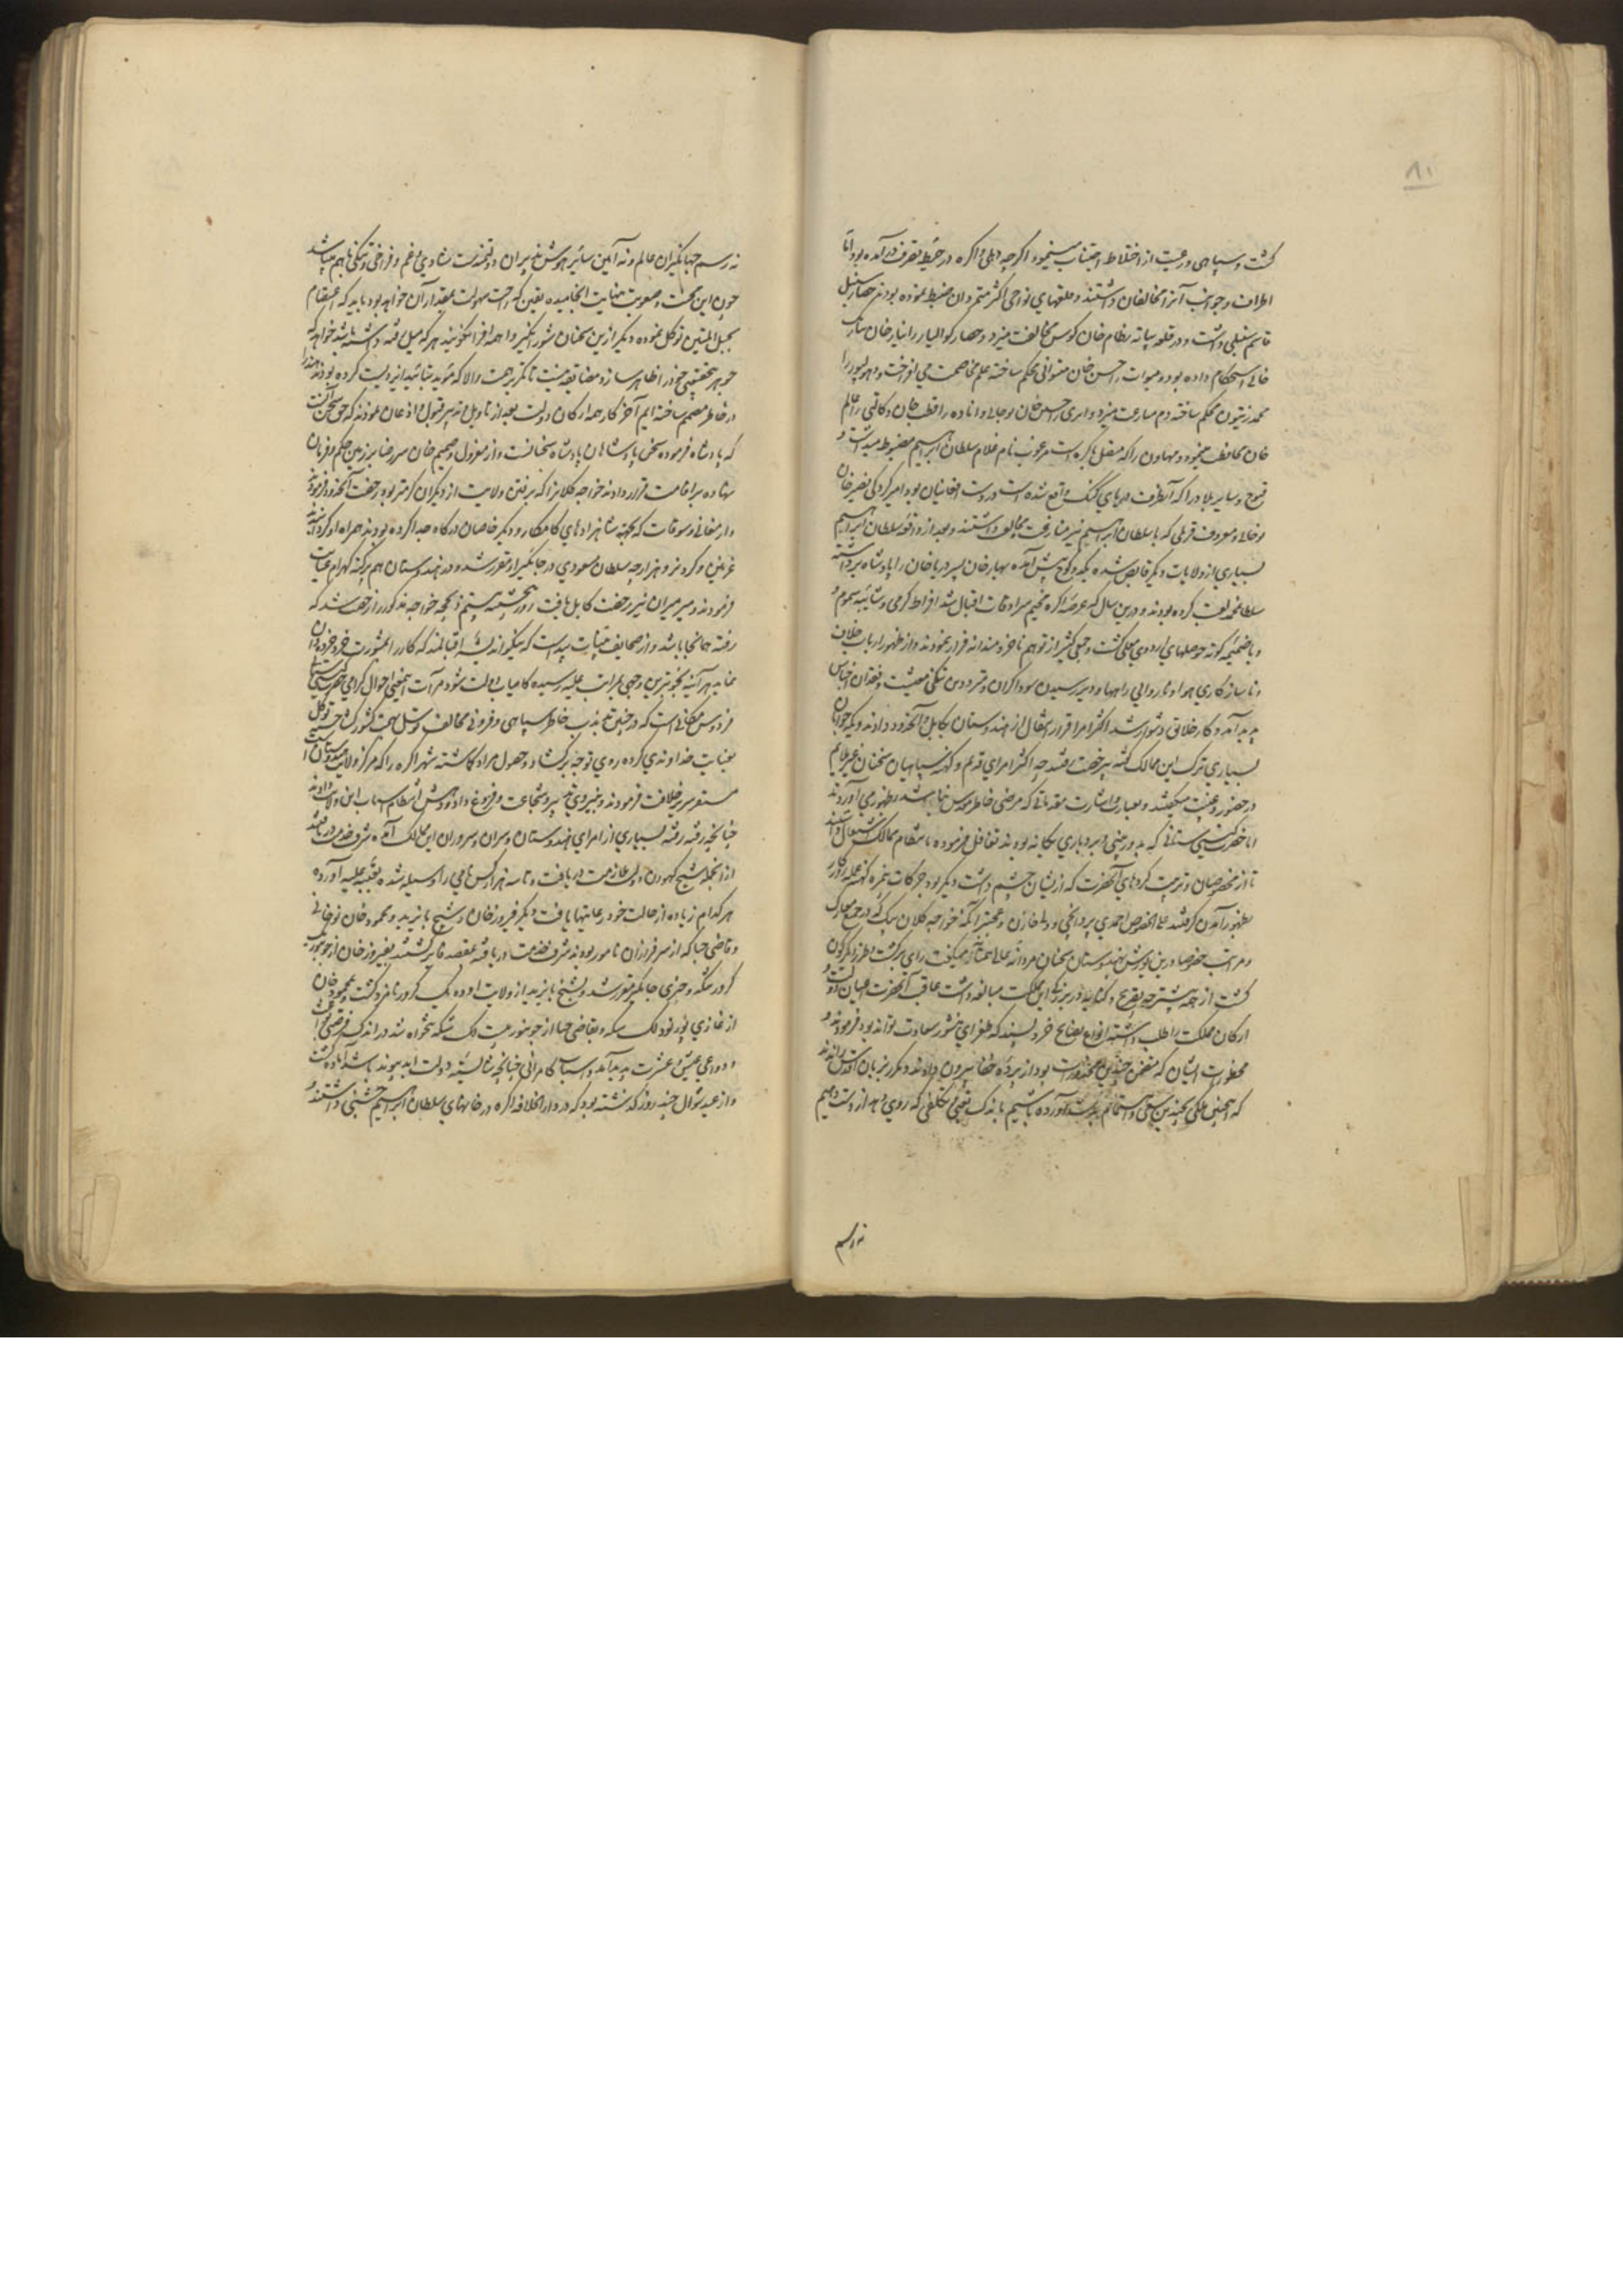 ۸۱
گشت و سپاهی و رعیت از اختلاط اجتناب مینمود اگرچه دهلی و اگره در حیطه تصرف در آمده بود اما
اطراف و جوانب آنرا مخالفان داشتند و قلعهای نواحی اکثر متمردان ضبط نموده بودند حصار سنبل
قاسم سنبلی داشت و در قلعه بیانه نظام خان کوس مخالفت میزد و حصار کوالیار را تاتار خان سارنک
خانی استحکام داده بود و میوات را حسن خان میواتی محکم ساخته علم مخاصمت می افراخت و دهولپور را
محمد زیتون محکم ساخته دم مبارعت میزد و اتری را حسین خان نوحانی و اتاوه را قطب خان و کالپی را عالم
خان محافظت مینمود و مهاون را که متصل باکره است مرغوب نام غلام سلطان ابراهیم مضبوط میداشت و
قنوج و سایر بلاد را که آنطرف دریای کنک واقع شده است در دست افغانیان بود بامیر کردکی نصیر خان
نوحانی و معروف فرملی که با سلطان ابراهیم نیز منازعت مخالف داشتند و بعد از واقعه سلطان ابراهیم
بسیاری از ولایات دیگر قابض شده یکدو کوچ پیش آمده بهار خان پسر دریا خان را پادشاه برداشته
سلطان محمد لقب کرده بودند و درین سال که عرصه اگره مخیم سرادقات اقبال شد افراط گرمی و شائبه سموم و
وبا ضمیمه کوته حوصلهای اردوی معلی گشت و جمعی کثیر از توهم ناخردمندانه فرار نمودند و از ظهور ارباب خلاف
و ناسازگاری هوا و نا روایی راهها و دیر رسیدن سوداگران و تردد در تنگی معیشت و فقدان اجناس
پدید آمد و کار خلائق دشوار شد اکثر امرا قرار انتقال از هندوستان بکابل و آنحدود دادند و یکه جوانان
بسیاری ترک این ممالک گفته بیرخصت رفتند چه اکثر امرای قدیم و کهنه سپاهیان سخنان غیر ملایم
در حضور و غیبت میگفتند و بعبارت و اشارت مقدماتی که مرضی خاطر اقدس نباشد بظهور می آوردند
اما حضرت گیتی ستانی که بدوربینی و بردباری یگانه بودند تغافل فرموده بانتظام ممالک اشتغال داشتند
تا از مخصوصان و تربیت کردهای آنحضرت که ازیشان چشم داشت دیگر بود حرکات بی مزه کهنه عمله روزگار
بظهور آمدن گرفتند علی الخصوص احمدی پروانچی و ولی خازن و عجبتر آنکه خواجه کلان بیک که در جمیع معارک
و مراتب خصوصا درین یورش هندوستان سخنان مردانه عالی همتانه میگفت رای برگشت و طرز دیگرگون
گشت از همه پیشتر صریح و کنایه در برآمدن این مملکت مبالغه داشت عاقبت آنحضرت اعیان دولت و
ارکان مملکت را طلب داشته انواع نصایح خرد پسند که طغرای منشور سعادت تواند بود فرمودند و
محظورات ایشان که متضمن چندین محذورات بود از پرده خفا بیرون دادند و مکرر بزبان اقدس راندند
که اینچنین ملکی بچندین سعی و اهتمام بدست آورده باشیم باندک تعبی و تکلفی که روی دهد از دست دهیم
نه رسم
نه رسم جهانگیران عالم و نه آیین سایر هوش پذیران دولتمندست شادی و غم و فراخی و تنگی با هم میباشد
چون این محنت و صعوبت بنهایت انجامیده یقین که راحت سهولت بمقدار آن خواهد بود باید که اعتصام
بحبل المتین توکل نموده دیگر ازین سخنان شور انگیز و واهمه افزا نگویند هر که میل رفتن داشته باشد خواهد که
جوهر بیحقیقتی خود را ظاهر سازد مضایقه نیست تا دیگر بر همت والا که مؤید بتائید ایزدیست کرده بودن هند را
در خاطر مصمم ساخته ایم آخر کار همه ارکان دولت بعد از تاویل تدبیر قبول و اذعان نمودند که حق سخن آنست
که پادشاه فرموده سخن پادشاهان پادشاه سخنانست و از معزول و صمیم خان سر رضا بر زمین حکم و فرمان
نهاده بر اقامت قرار دادند خواجه کلان را که برفتن ولایت از دیگران گرمتر بود رخصت آنحدود فرمودند
و ارمغانی و سوغات که بجهة شاهزادهای کامکار و دیگر خاصان درگاه جدا کرده بودند همراه او کردانیدند
غزنین و گردیز و هزارجه سلطان مسعودی در جاگیر او مقرر شد و در هندوستان هم پرگنه گهرام عنایت
فرمودند و میر میران نیز رخصت کابل یافت روز پنجشنبه بیستم ذیحجه خواجه مذکور را رخصت شد که
رفته همانجا باشد و از صحایف بینات پیداست که نیکو اندیشه اقبالمند که کار را بمشورت خرد خرده دان
نماید هر آینه بخوبترین وجهی بمراتب علیه رسیده کامیاب دولت شود مرآت اینمعنی احوال گرامی حضرت گیتی ستانی
فردوس مکانیست که در چنین تذبذب خاطر سپاهی و فرونی مخالف توسل بهمت کشورگشا جسته توکل
بعنایت خداوندی کرده روی توجه برگشاد و حصول مراد گماشته شهر اگره را که مرکز ولایت هندوستان است
مستقر سریر خلافت فرمودند و بنیروی تدبیر و شجاعت و فروغ داد و دهش انتظام اسباب این ولایت دادند
چنانچه رفته رفته بسیاری از امرای هندوستان و سران و سروران این ممالک آمده شرف خدمت دریافتند
از انجمله شیخ کهورن دولت ملازمت دریافت و تا سه هزار کس نامی را وسیله شده بعتبه علیه آورده
هر کدام زیاده از حالت خود رعایتها یافت دیگر فیروز خان و شیخ بایزید و محمود خان نوحانی
و قاضی جیا که از سرفرازان نامور بودند شرف خدمت دریافته بمقصد فایز گشتند بفیروز خان از جونپور یک
کرور تنگه و چیزی جاگیر مقرر شد و بشیخ بایزید از ولایت اوده یک کرور نامزد گشت و بمحمود خان
از غازی پور نود لک تنگه و بقاضی جیا از جونپور بیست لک تنگه تنخواه شد در اندک فرصتی
و دواعی عیش و عشرت پدید آمد و اسباب کامرانی چنانچه شایسته دولت ابد پیوند باشد آماده گشت
و از عید شوال چند روز گذشته بود که در دار الخلافه اگره در خانهای سلطان ابراهیم جشنی داشتند و